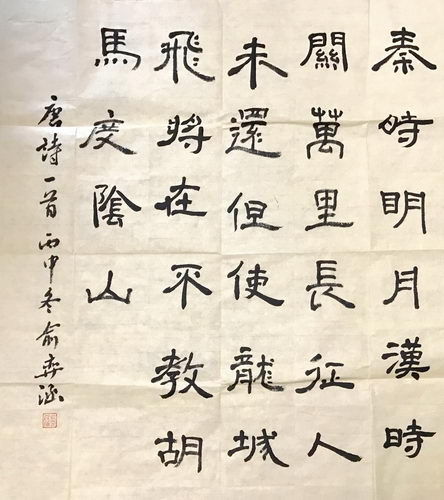 秦時明月漢時
關萬里長征人
未還但使龍城
飛將在不教胡
馬度陰山
唐詩一首丙申冬俞